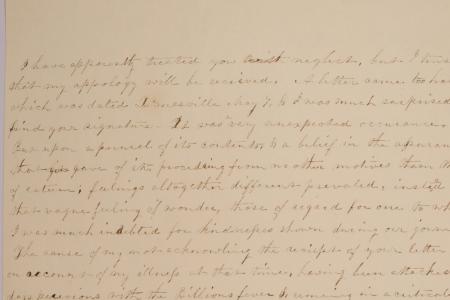 I have apparently treated you with neglect, but I trus
that my appology will be received. A letter came to ha
which was dated Janesville May 7, & I was much surprised
find your signature. It was very unexpected occurance.
But upon a perusal of its contents & a belief in the assuran
that you gave of its proceding from no other motives than t
of esteem; feelings altogether different prevaled, instead
that vague feeling of wonder, those of regard for one to wh
I was much indebted for kindnesses shown during our journ
The cause of my not acknowling the reciept of your letter
on account of my illness at that time, having been attacke
days previous with the Billious fever & remaing in a critical